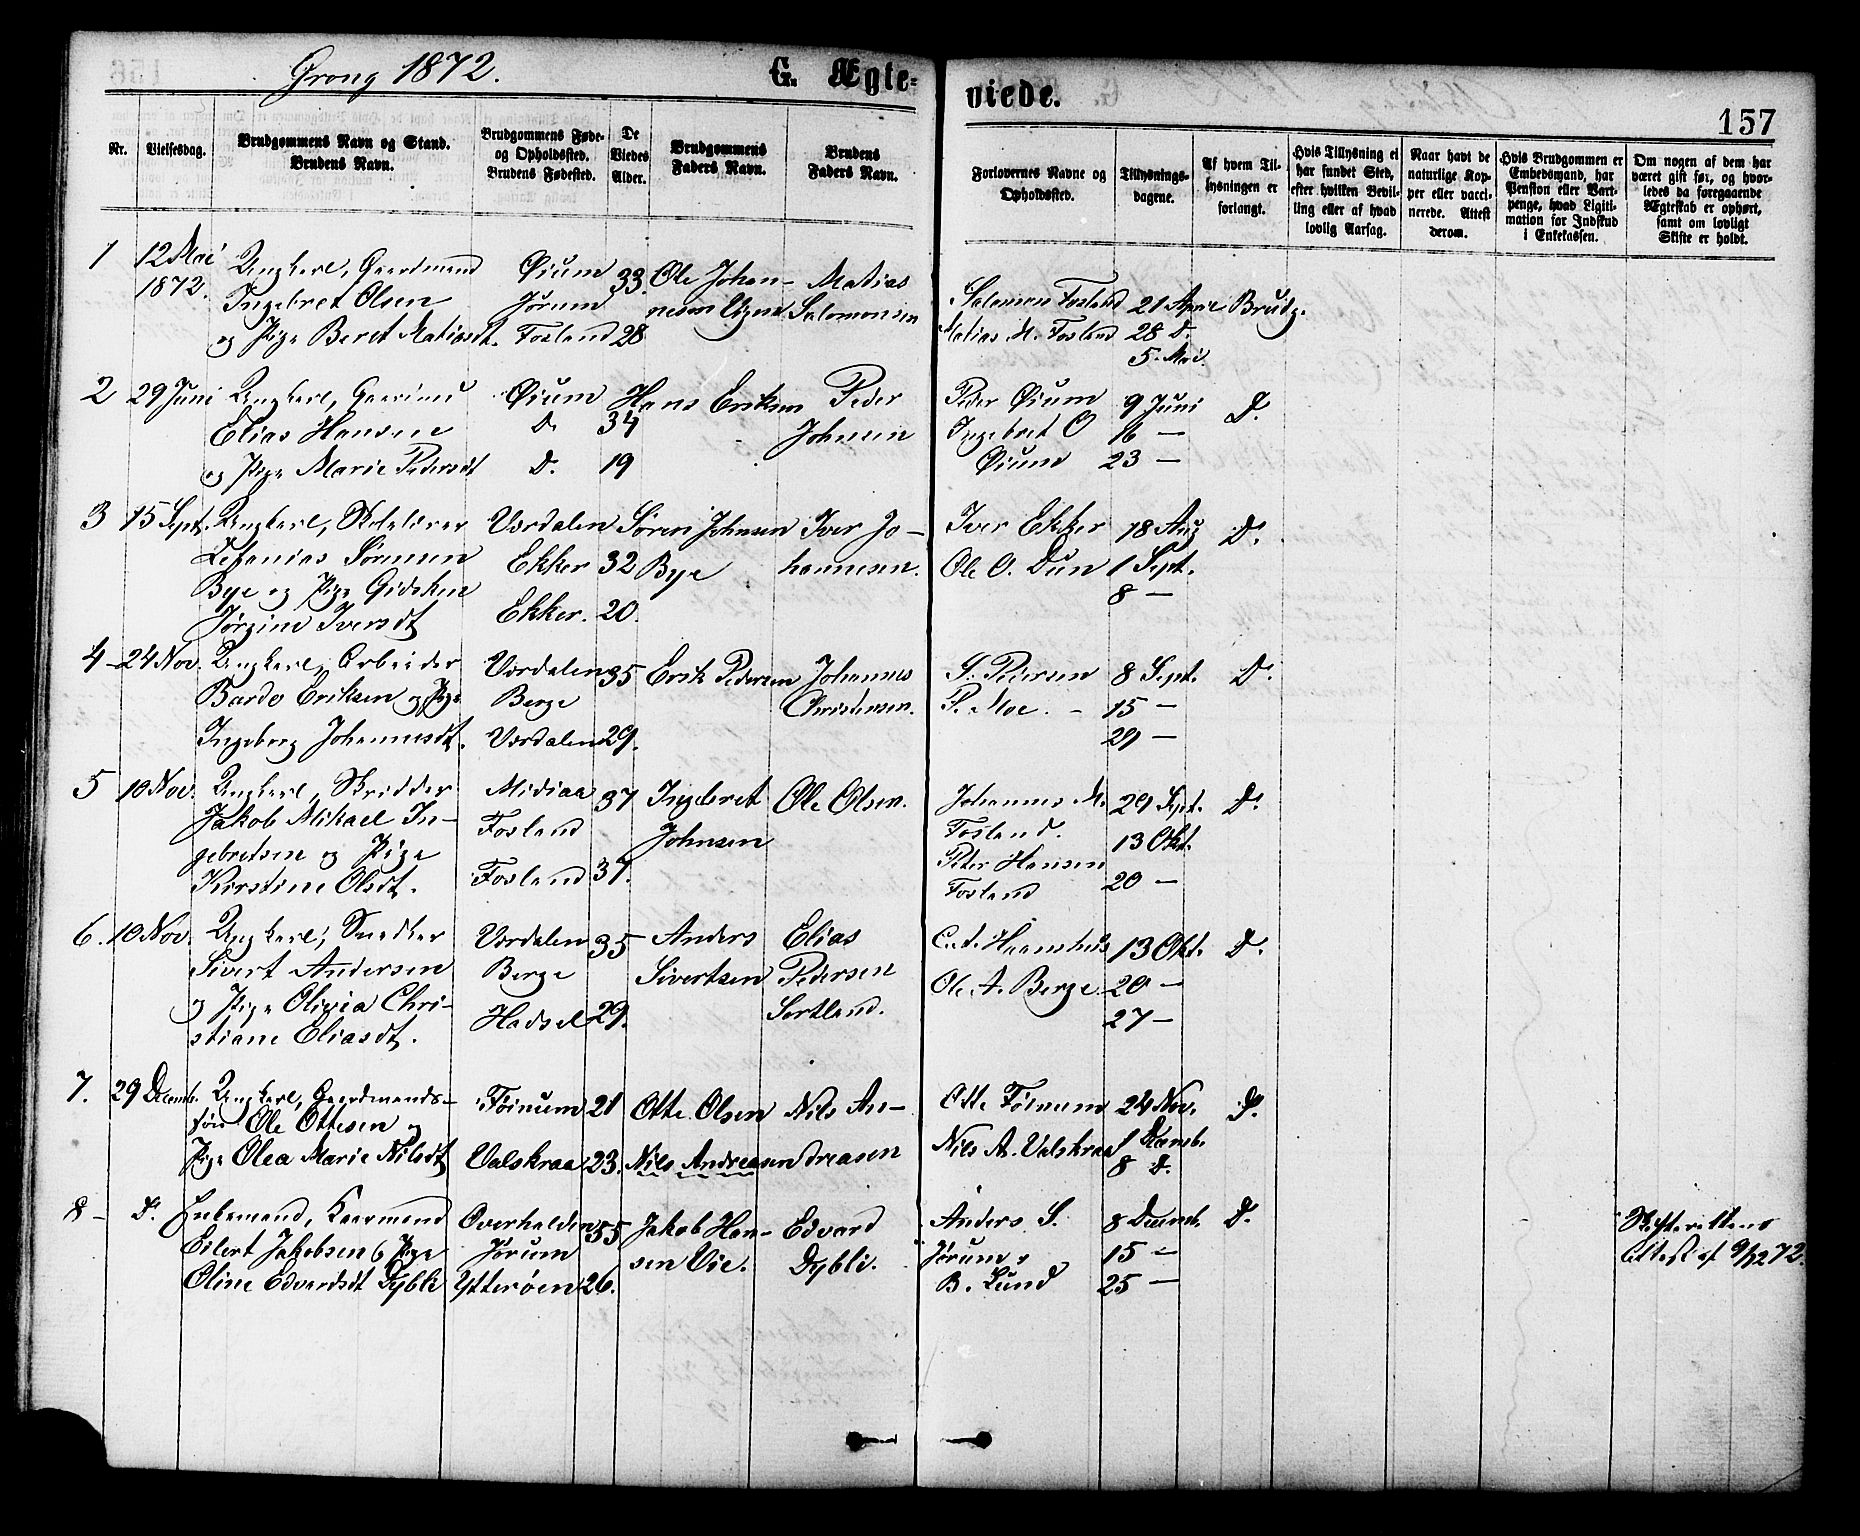 Grong 1872.
G. Ægte-
viede.
157
Nr.
Vielsesdag.
Brudgommens Navn og Stand.
Brudens Navn.
Brudgommens Føde-
og Opholdssted.
Brudens Fødested.
De
Viedes
Alder.
Brudgommens
Faders Navn.
Brudens
Faders Navn.
Forlovernes Navne og
Opholdssted.
Tillysnings-
dagene.
Af hvem Til-
lysningen er
forlangt.
Hvis Tillysning ei
har fundet Sted,
efter hvilken Bevil-
ling eller af hvad
lovlig Aarsag.
Naar havt de
naturlige Kop-
per eller vacci-
nerede. Attest
derom.
Hvis Brudgommen er
Embedsmand, har
Pension eller Vart-
penge, hvad Ligiti-
mation for Indskud
i Enkekassen.
Om nogen af dem har
været gift før, og hvor-
ledes da foregaaende
Ægteskab er ophørt,
samt om lovligt
Skifte er holdt.
1 12 Mai Ungkarl, Gaardmand Øium 33. Ole Johan- Matias
1872. Ingebret Olsen Jørum nesen Salomonsen
og Pige Beret Matiasdt. Fosland 28
Salomon Fosland 21 April Brudg.
Matias M. Fosland 28 D.
5. Mai.
2 29 Juni Ungkarl, Øium Hans Eriksen Peder
Elias Hansen D. 34 Johnsen
og Pige Marie Pedersdt D. 19
Peder Øium 9 Juni D.
Ingebret O 16 —
Øium 23 —
3 15 Sept. Ungkarl, Skolelærer Værdalen Søren Johnsen Iver Jo-
Zefanias Sørensen Ekker 32 Bye hannesen.
Bye og Pige Gidsken Ekker. 20.
Jørgine Iversdt
Iver Ekker 18 Aug D.
Ole O. Dun 1 Sept.
8 —
4 - 24 Nov. Ungkarl, Arbeider Værdalen 35 Erik Pedersen Johannes
Bardo Eriksen og Pige Berge Christensen.
Ingeborg Johannesdt. Værdalen 29.
S. Pedersen 8 Sept. D.
P. Moe. - 15 —
29 —
5 10 Nov. Ungkarl, Skrædder Midiaa 37 Ingebret Ole Olsen.
Jakob Mikael In- Fosland Johnsen
gebretsen og Pige
Kirstine Olsdt. Fosland 37.
Johannes M. 29 Sept. D.
Fosland. 13 Okt.
Peter Hansen
Fosland 20 —
6. 10 Nov. Ungkarl, Snedker Værdalen 35 Anders Elias
Sivert Andersen Berge Sivertsen Pedersen
og Pige Olivia Chri- Hadsel 29. Sortland.
stiane Eliasdt.
13 Okt. D.
Ole A. Berge 20 —
27 —
7. 29 Decemb. Ungkarl, Gaardmands- Føinum 21 Otte Olsen Nils An-
søn Ole Ottesen og
Pige Olea Marie Nilsdt Valskraa 23. Nils Andreasen dreasen
Otte Føinum 24 Nov. D.
Nils A. Valskraa 1 Decemb.
8 D.
8 - D. Enkemand, Kaarmand Overhalden 55 Jakob Han- Edvard
Eilert Jakobsen & Pige Jørum sen Vie. Dybli.
Oline Edvardsdt Dyble Ytterøen 26.
Anders S. 8 Decemb. D.
Jørum & 15 —
B. Lund 25 —
Skifterettens
Attest af 9/12 72.